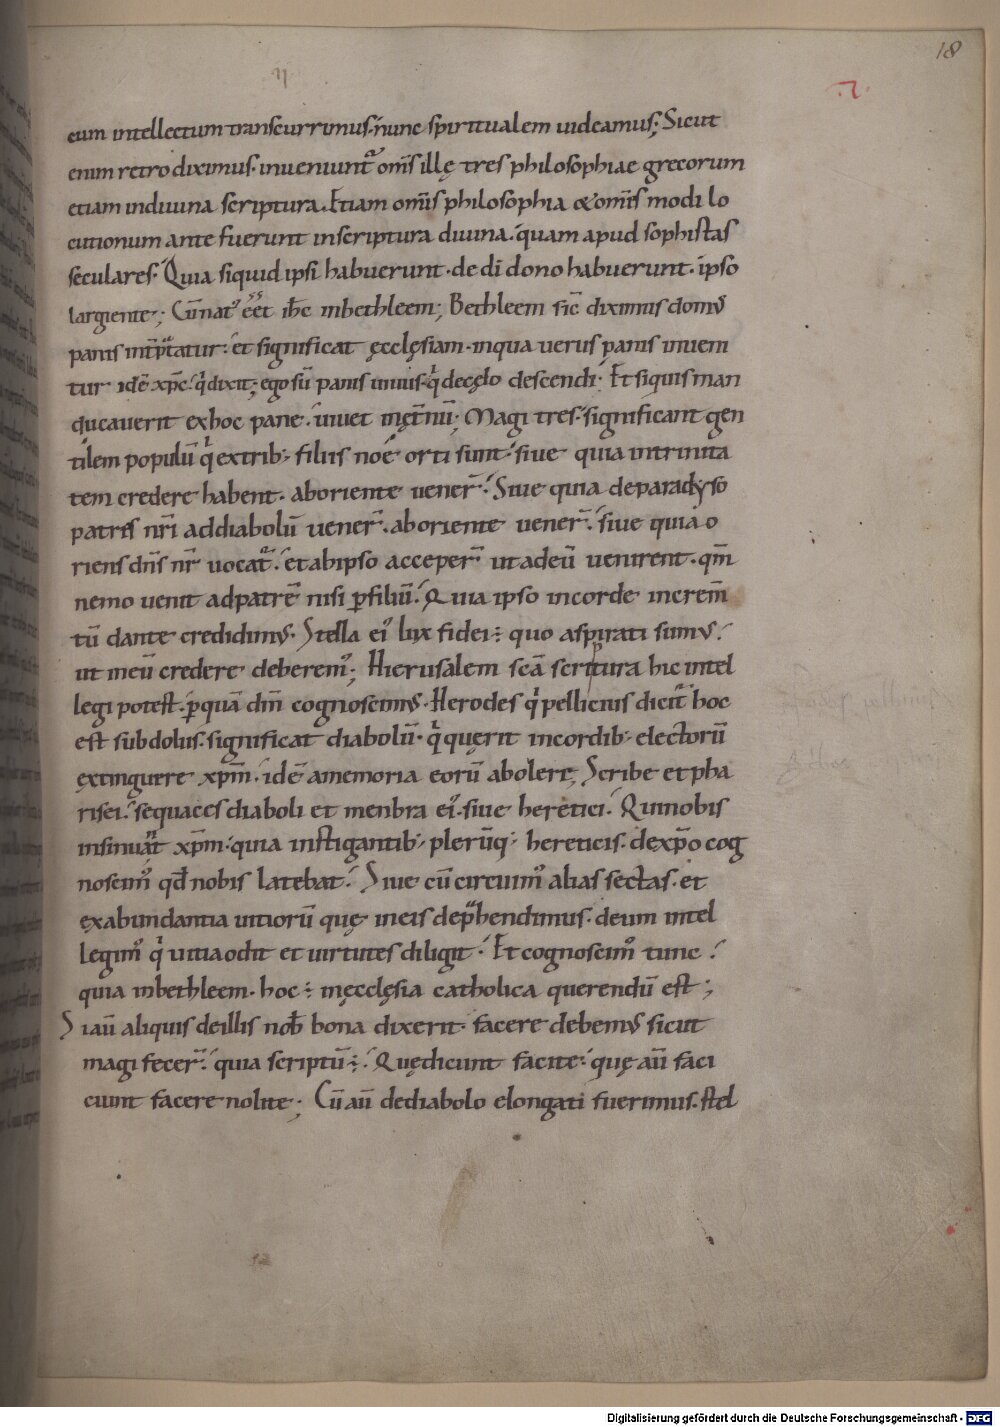 18
eum intellectum transcurrimus. nunc spiritualem uideamus; Sicut
enim retro diximus. inueniunt᷑ om̅s illę tres philosophiae grecorum
etiam in diuina scriptura. Etiam om̅s philosophia & om̅s modi lo
cutionum ante fuerunt in scriptura diuina. quam apud sophistas
seculares. Quia siquid ipsi habuerunt. de di̅ dono habuerunt. ipso
largiente; Cu̅ natꝰ eet ih̅c in bethleem; Bethleem sic̅ diximus domꝰ
panis int̅p̅tatur. et significat ęcclęsiam. in qua uerus panis inuem
tur ide̅ xp̅c. q̍ dixit; ego su̅ panis uiuus. q̍ de cęlo descendi; Et siquis man
ducauerit ex hoc pane. uiuet in ęt̅nu̅; Magi tres. significant gen
tilem populu̅ q̍ ex trib; filiis noe orti sunt. siue quia in trinita
tem credere habent. ab oriente uener̅. Siue quia de paradyso
patres nr̅i ad diabolu̅ uener̅. ab oriente uener̅. siue quia o
riens dn̅s nr̅ uocat᷑. et ab ipso acceper̅ ut ad eu̅ uenirent. qm̅
nemo uenit ad patre̅ nisi ꝑ filiu̅. Quia ipso in corde increm̅
tu̅ dante credidimꝰ. Stella eiꝰ lux fidei ÷ quo aspirati sumꝰ.
ut in eu̅ credere deberemꝰ; Hierusalem sc̅a scriptura hic intel
legi potest. ꝑ qua̅ dm̅ cognoscimꝰ. Herodes q̍ pellicius dicit᷑ hoc
est subdolus. significat diabolu̅. q̍ quęrit in cordib; electoru̅
extinguere xp̅m. ide̅ a memoria eoru̅ abolere; Scribe et pha
risei. sequaces diaboli et menbra eiꝰ. siue heretici. Qui nobis
insinuat᷑ xp̅m. quia instigantib; pleru̅q; hereticis. de xp̅o cog
noscimꝰ qd̅ nobis latebat. Siue cu̅ circuimꝰ alias sectas. et
ex abundantia uitioru̅ quę in eis dep̅hendimus. deum intel
legimꝰ q̍ uitia odit et uirtutes diligit. Et cognoscimꝰ tunc.
quia in bethleem. hoc ÷ in ęcclęsia catholica querendu̅ est;
Si au̅ aliquis de illis nob̅ bona dixerit. facere debemꝰ sicut
magi fecer̅. quia scriptu̅ ÷. Quę dicunt facite. quę au̅ faci
ciunt facere nolite; Cu̅ au̅ de diabolo elongati fuerimus. stel
Digitalisierung gefördert durch die Deutsche Forschungsgemeinschaft - DFG